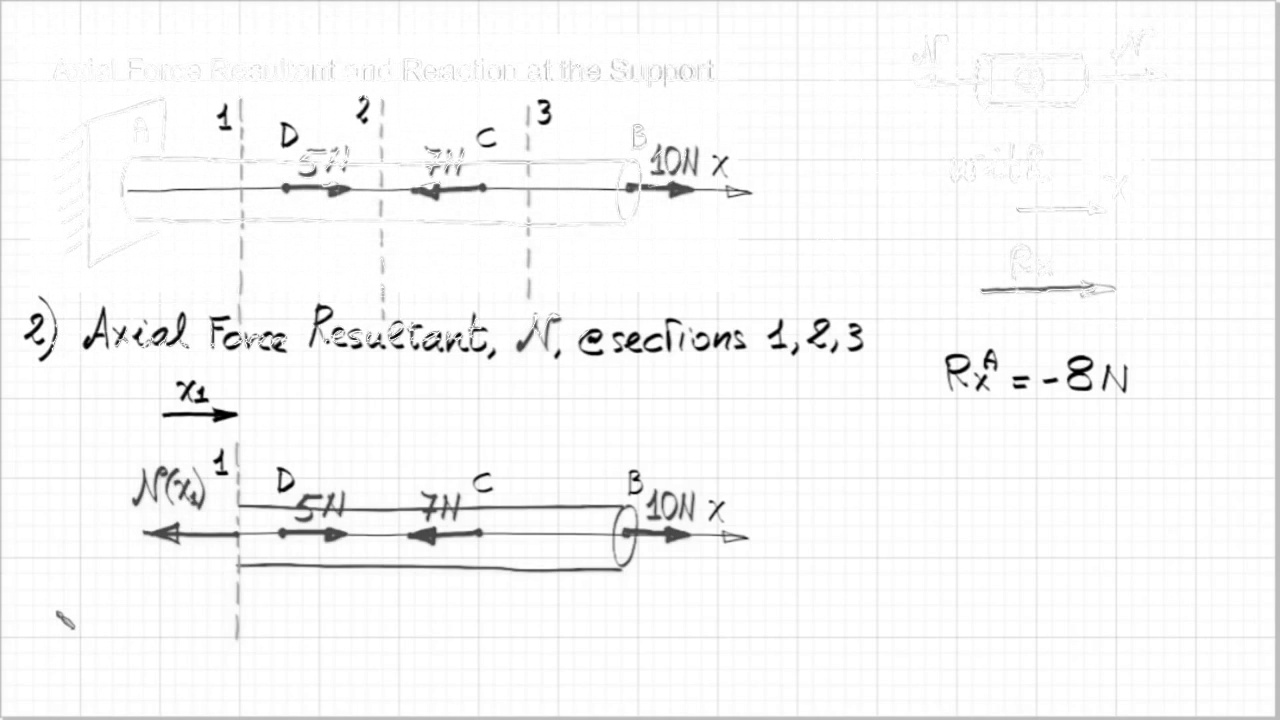 Axial Force Resultant and Reaction at the Support
N N
A 1 D 5N 2 7N C 3 B 10N x
with
x
Rx
2) Axial Force Resultant, N, @sections 1,2,3
RxA = -8N
x1
N(x1) 1 D 5N 7N C B 10N x